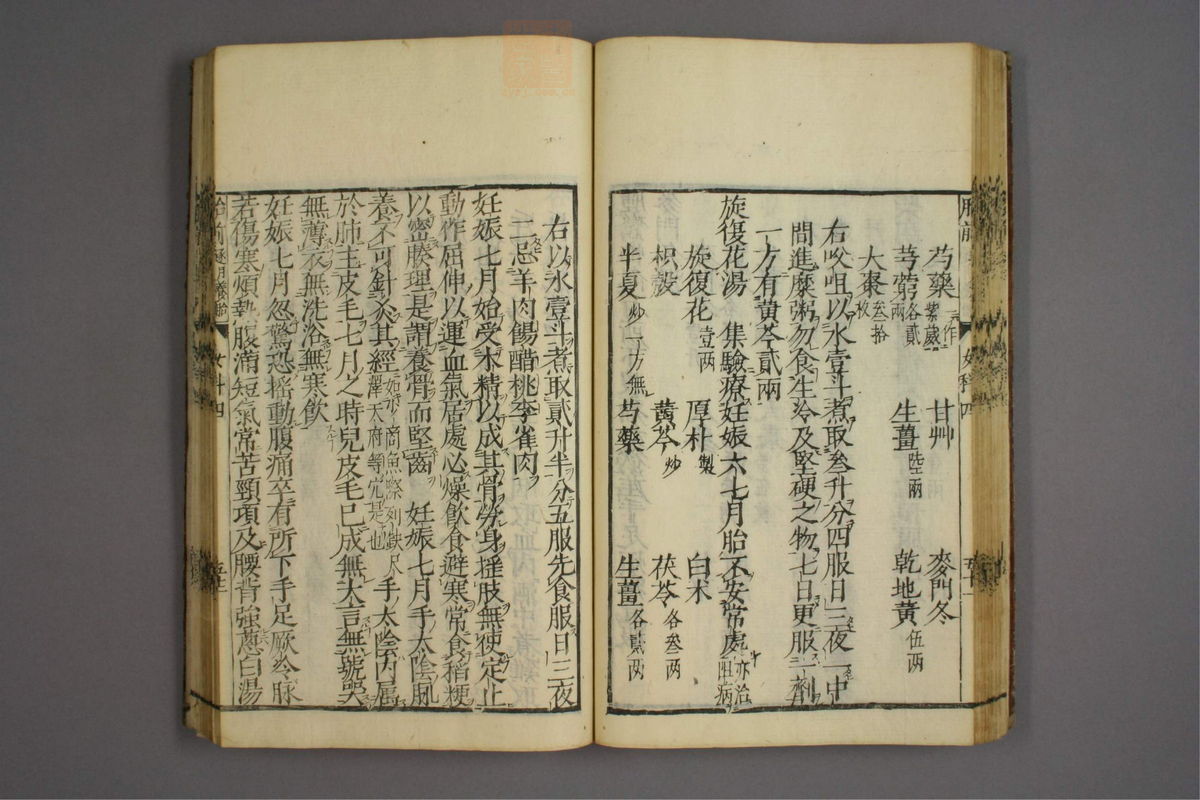 芍藥一作紫葳 甘艸 麥門冬
芎藭各貳兩 生薑陸兩 乾地黃伍兩
大棗叁拾枚
右㕮咀以水壹斗煮取叁升分四服日三夜一中
間進糜粥勿食生冷及堅硬之物七日更服一劑
一方有黃芩貳兩
旋復花湯 集驗療妊娠六七月胎不安常處亦治阻病
旋復花壹两 厚朴製 白术
枳殼 黃芩炒 茯苓各叁两
半夏炒一方無 芍藥 生薑各貳两
胎前 女科四
右以水壹斗煮取貳升半分五服先食服日三夜
二忌羊肉餳醋桃李雀肉
妊娠七月始受木精以成其骨勞身揺肢無使定止
動作屈伸以運血氣居處必燥飲食避寒常食稻粳
以密腠理是謂養骨而堅齒 妊娠七月手太陰脈
養不可針灸其經如少商魚際列缺尺澤天府等穴是也手太陰内屬
於肺主皮毛七月之時兒皮毛已成無大言無號哭
無薄衣無洗浴無寒飲
妊娠七月忽驚恐揺動腹痛卒有所下手足厥冷脉
若傷寒煩熱腹滿短氣常苦頸項及腰背強葱白湯
胎前逐月養胎 女科四